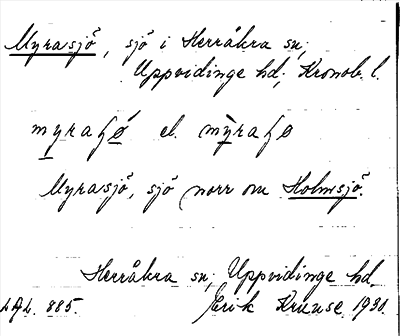 Myrasjö, sjö i Herråkra sn;
Uppvidinge hd; Kronob. l.
el.
Myrasjö, sjö norr om Holmsjö.
Herråkra sn; Uppvidinge hd.
885. Erik Kruuse 1931.